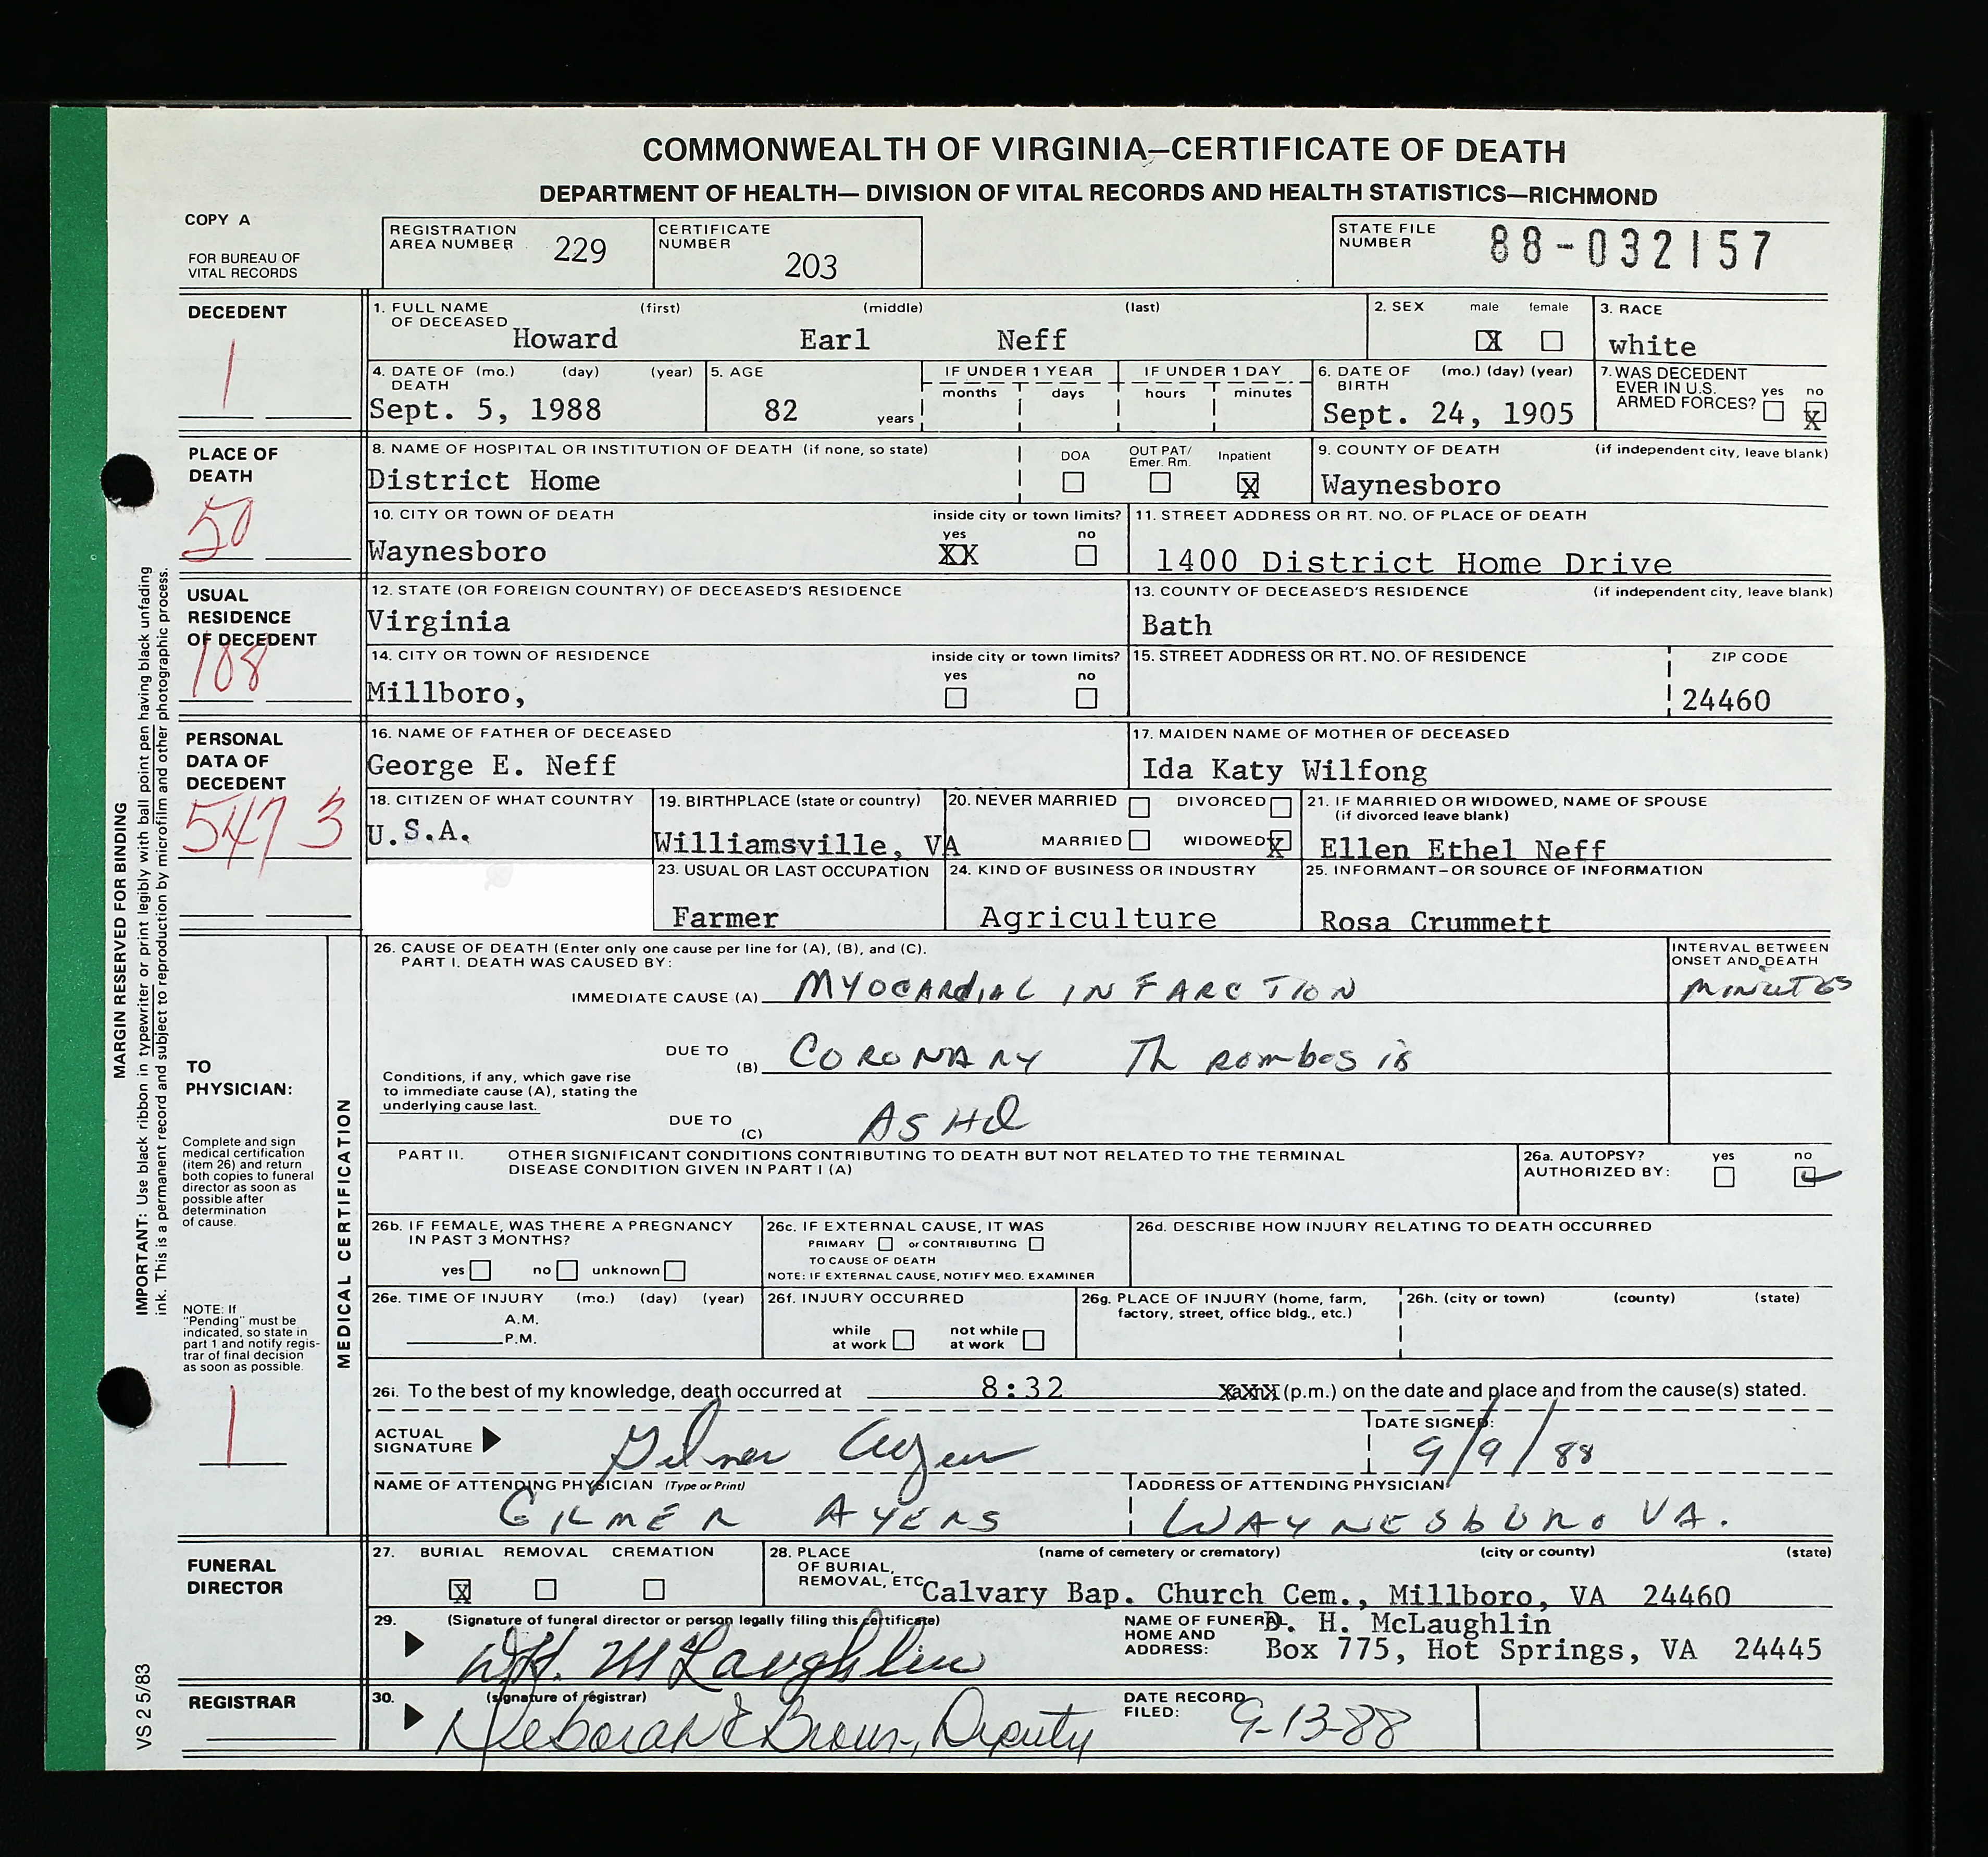 COMMONWEALTH OF VIRGINIA—CERTIFICATE OF DEATH
DEPARTMENT OF HEALTH— DIVISION OF VITAL RECORDS AND HEALTH STATISTICS—RICHMOND
COPY A
FOR BUREAU OF
VITAL RECORDS
REGISTRATION
AREA NUMBER 229
CERTIFICATE
NUMBER 203
STATE FILE
NUMBER 88-032157
DECEDENT
1
1. FULL NAME (first) (middle) (last)
OF DECEASED
Howard Earl Neff
2. SEX male female
X
3. RACE
white
4. DATE OF (mo.) (day) (year)
DEATH
Sept. 5, 1988
5. AGE
82 years
IF UNDER 1 YEAR
months days
IF UNDER 1 DAY
hours minutes
6. DATE OF (mo.) (day) (year)
BIRTH
Sept. 24, 1905
7. WAS DECEDENT
EVER IN U.S. yes no
ARMED FORCES? X
PLACE OF
DEATH
50
8. NAME OF HOSPITAL OR INSTITUTION OF DEATH (if none, so state)
District Home
DOA
OUT PAT/
Emer. Rm.
Inpatient
X
9. COUNTY OF DEATH (if independent city, leave blank)
Waynesboro
10. CITY OR TOWN OF DEATH inside city or town limits?
yes no
Waynesboro XX
11. STREET ADDRESS OR RT. NO. OF PLACE OF DEATH
1400 District Home Drive
USUAL
RESIDENCE
OF DECEDENT
108
12. STATE (OR FOREIGN COUNTRY) OF DECEASED'S RESIDENCE
Virginia
13. COUNTY OF DECEASED'S RESIDENCE (if independent city, leave blank)
Bath
14. CITY OR TOWN OF RESIDENCE inside city or town limits?
yes no
Millboro,
15. STREET ADDRESS OR RT. NO. OF RESIDENCE ZIP CODE
24460
PERSONAL
DATA OF
DECEDENT
547 3
16. NAME OF FATHER OF DECEASED
George E. Neff
17. MAIDEN NAME OF MOTHER OF DECEASED
Ida Katy Wilfong
18. CITIZEN OF WHAT COUNTRY
U.S.A.
19. BIRTHPLACE (state or country)
Williamsville, VA
20. NEVER MARRIED DIVORCED
MARRIED WIDOWED X
21. IF MARRIED OR WIDOWED, NAME OF SPOUSE
(if divorced leave blank)
Ellen Ethel Neff
23. USUAL OR LAST OCCUPATION
Farmer
24. KIND OF BUSINESS OR INDUSTRY
Agriculture
25. INFORMANT—OR SOURCE OF INFORMATION
Rosa Crummett
MARGIN RESERVED FOR BINDING
IMPORTANT: Use black ribbon in typewriter or print legibly with ball point pen having black unfading
ink. This is a permanent record and subject to reproduction by microfilm and other photographic process.
VS 2 5/83
TO
PHYSICIAN:
Complete and sign
medical certification
(item 26) and return
both copies to funeral
director as soon as
possible after
determination
of cause.
NOTE: If
"Pending" must be
indicated, so state in
part 1 and notify regis-
trar of final decision
as soon as possible.
1
MEDICAL CERTIFICATION
26. CAUSE OF DEATH (Enter only one cause per line for (A), (B), and (C).
PART I. DEATH WAS CAUSED BY:
INTERVAL BETWEEN
ONSET AND DEATH
IMMEDIATE CAUSE (A) MYOCARdiAL INFARCTION minutes
DUE TO
(B) CORONARY Thrombosis
Conditions, if any, which gave rise
to immediate cause (A), stating the
underlying cause last.
DUE TO
(C) ASHd
PART II. OTHER SIGNIFICANT CONDITIONS CONTRIBUTING TO DEATH BUT NOT RELATED TO THE TERMINAL
DISEASE CONDITION GIVEN IN PART I (A)
26a. AUTOPSY? yes no
AUTHORIZED BY:
26b. IF FEMALE, WAS THERE A PREGNANCY
IN PAST 3 MONTHS?
yes no unknown
26c. IF EXTERNAL CAUSE, IT WAS
PRIMARY or CONTRIBUTING
TO CAUSE OF DEATH
NOTE: IF EXTERNAL CAUSE, NOTIFY MED. EXAMINER
26d. DESCRIBE HOW INJURY RELATING TO DEATH OCCURRED
26e. TIME OF INJURY (mo.) (day) (year)
A.M.
P.M.
26f. INJURY OCCURRED
while
at work
not while
at work
26g. PLACE OF INJURY (home, farm,
factory, street, office bldg., etc.)
26h. (city or town) (county) (state)
26i. To the best of my knowledge, death occurred at 8:32 (p.m.) on the date and place and from the cause(s) stated.
ACTUAL
SIGNATURE Gilmer Ayers
DATE SIGNED:
9/9/88
NAME OF ATTENDING PHYSICIAN (Type or Print)
GILMER AYERS
ADDRESS OF ATTENDING PHYSICIAN
WAYNESbURo VA.
FUNERAL
DIRECTOR
27. BURIAL REMOVAL CREMATION
X
28. PLACE (name of cemetery or crematory) (city or county) (state)
OF BURIAL,
REMOVAL, ETC.
Calvary Bap. Church Cem., Millboro, VA 24460
29. (Signature of funeral director or person legally filing this certificate)
D.H. McLaughlin
NAME OF FUNERAL
HOME AND
ADDRESS:
D. H. McLaughlin
Box 775, Hot Springs, VA 24445
REGISTRAR
30. (signature of registrar)
Deborah E Brown, Deputy
DATE RECORD
FILED: 9-13-88